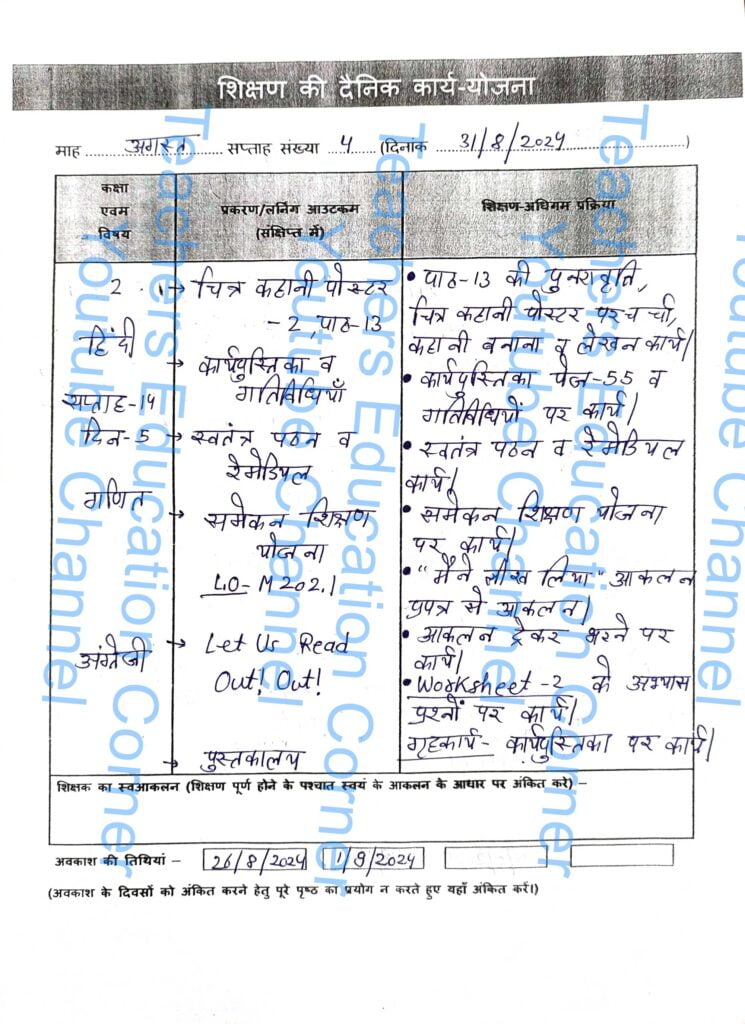 शिक्षण की दैनिक कार्य-योजना
माह ..... अगस्त ..... सप्ताह संख्या .. 4 .. (दिनांक ..... 31/8/2024 .....)
कक्षा
एवम
विषय
प्रकरण/लर्निंग आउटकम
(संक्षिप्त में)
शिक्षण-अधिगम प्रक्रिया
2
हिंदी
सप्ताह-14
दिन-5
गणित
अंग्रेजी
1→ चित्र कहानी पोस्टर
-2, पाठ-13
→ कार्यपुस्तिका व
गतिविधियाँ
→ स्वतंत्र पठन व
रेमेडियल
→ समेकन शिक्षण
योजना
LO- M202.1
→ Let Us Read
Out! Out!
→ पुस्तकालय
• पाठ-13 की पुनरावृति,
चित्र कहानी पोस्टर पर चर्चा,
कहानी बनाना व लेखन कार्य।
• कार्यपुस्तिका पेज-55 व
गतिविधियों पर कार्य।
• स्वतंत्र पठन व रेमेडियल
कार्य।
• समेकन शिक्षण योजना
पर कार्य।
• "मैंने सीख लिया" आकलन
प्रपत्र से आकलन।
• आकलन ट्रेकर भरने पर
कार्य।
• Worksheet-2 के अभ्यास
प्रश्नों पर कार्य।
गृहकार्य- कार्यपुस्तिका पर कार्य।
शिक्षक का स्वआकलन (शिक्षण पूर्ण होने के पश्चात स्वयं के आकलन के आधार पर अंकित करे) –
अवकाश की तिथियां – 26/8/2024 1/9/2024
(अवकाश के दिवसों को अंकित करने हेतु पूरे पृष्ठ का प्रयोग न करते हुए यहाँ अंकित करें।)
Teachers Education Corner
Youtube Channel
Teachers Education Corner
Youtube Channel
Teachers Education Corner
Youtube Channel